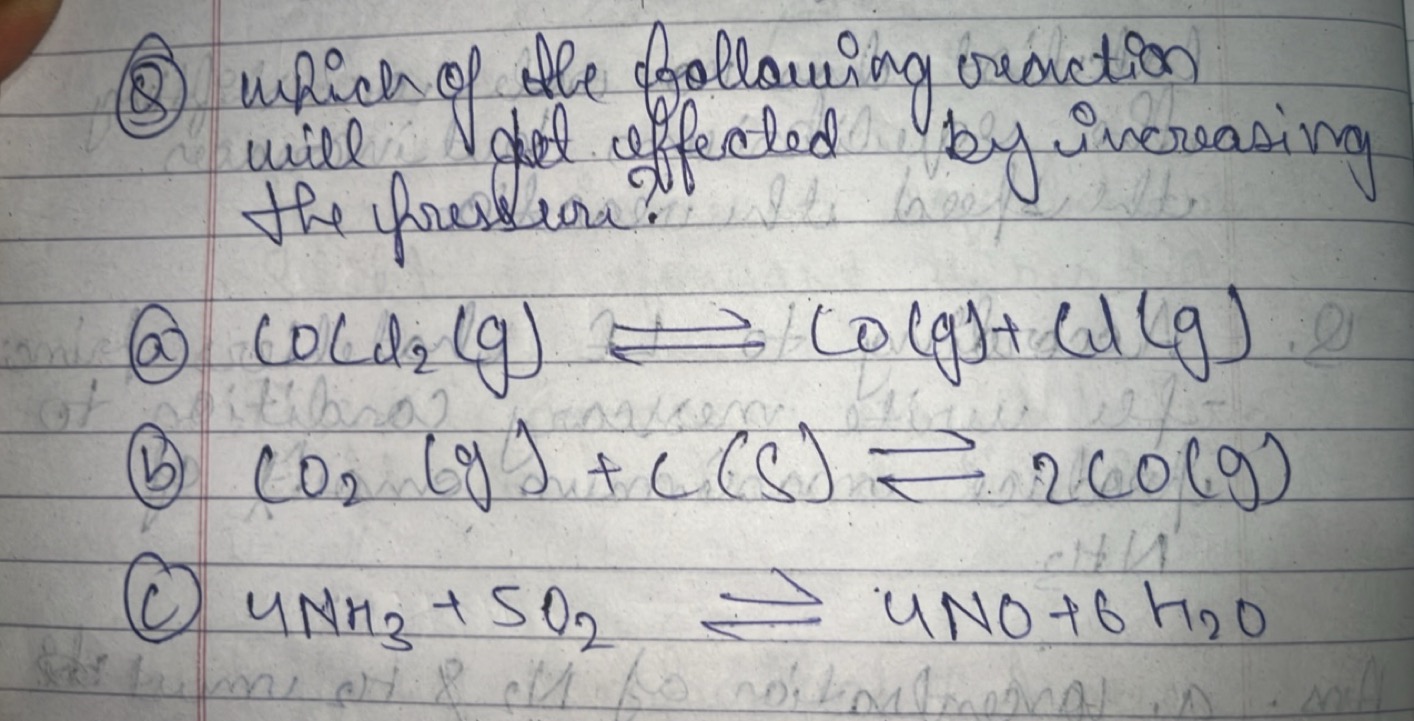 Q which of the following reaction
will get effected by increasing
the pressure?
(a) COCl2 (g) ⇌ CO(g) + Cl (g)
(b) CO2 (g) + C (S) ⇌ 2CO(g)
(c) 4NH3 + 5O2 ⇌ 4NO + 6 H2O